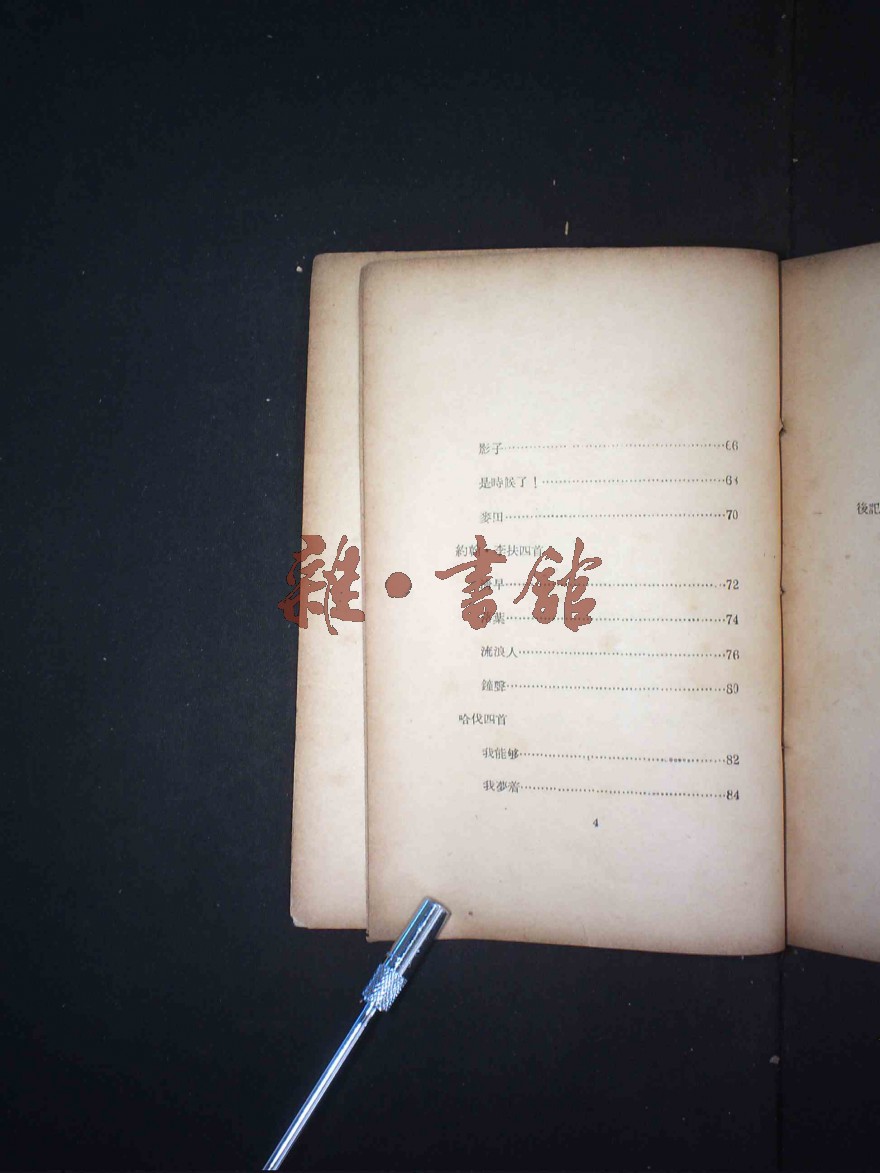 影子 66
是時候了！ 68
麥田 70
李扶四首
早 72
葉 74
流浪人 76
鐘聲 80
哈伐四首
我能够 82
我夢着 84
4
後記
雜·書館